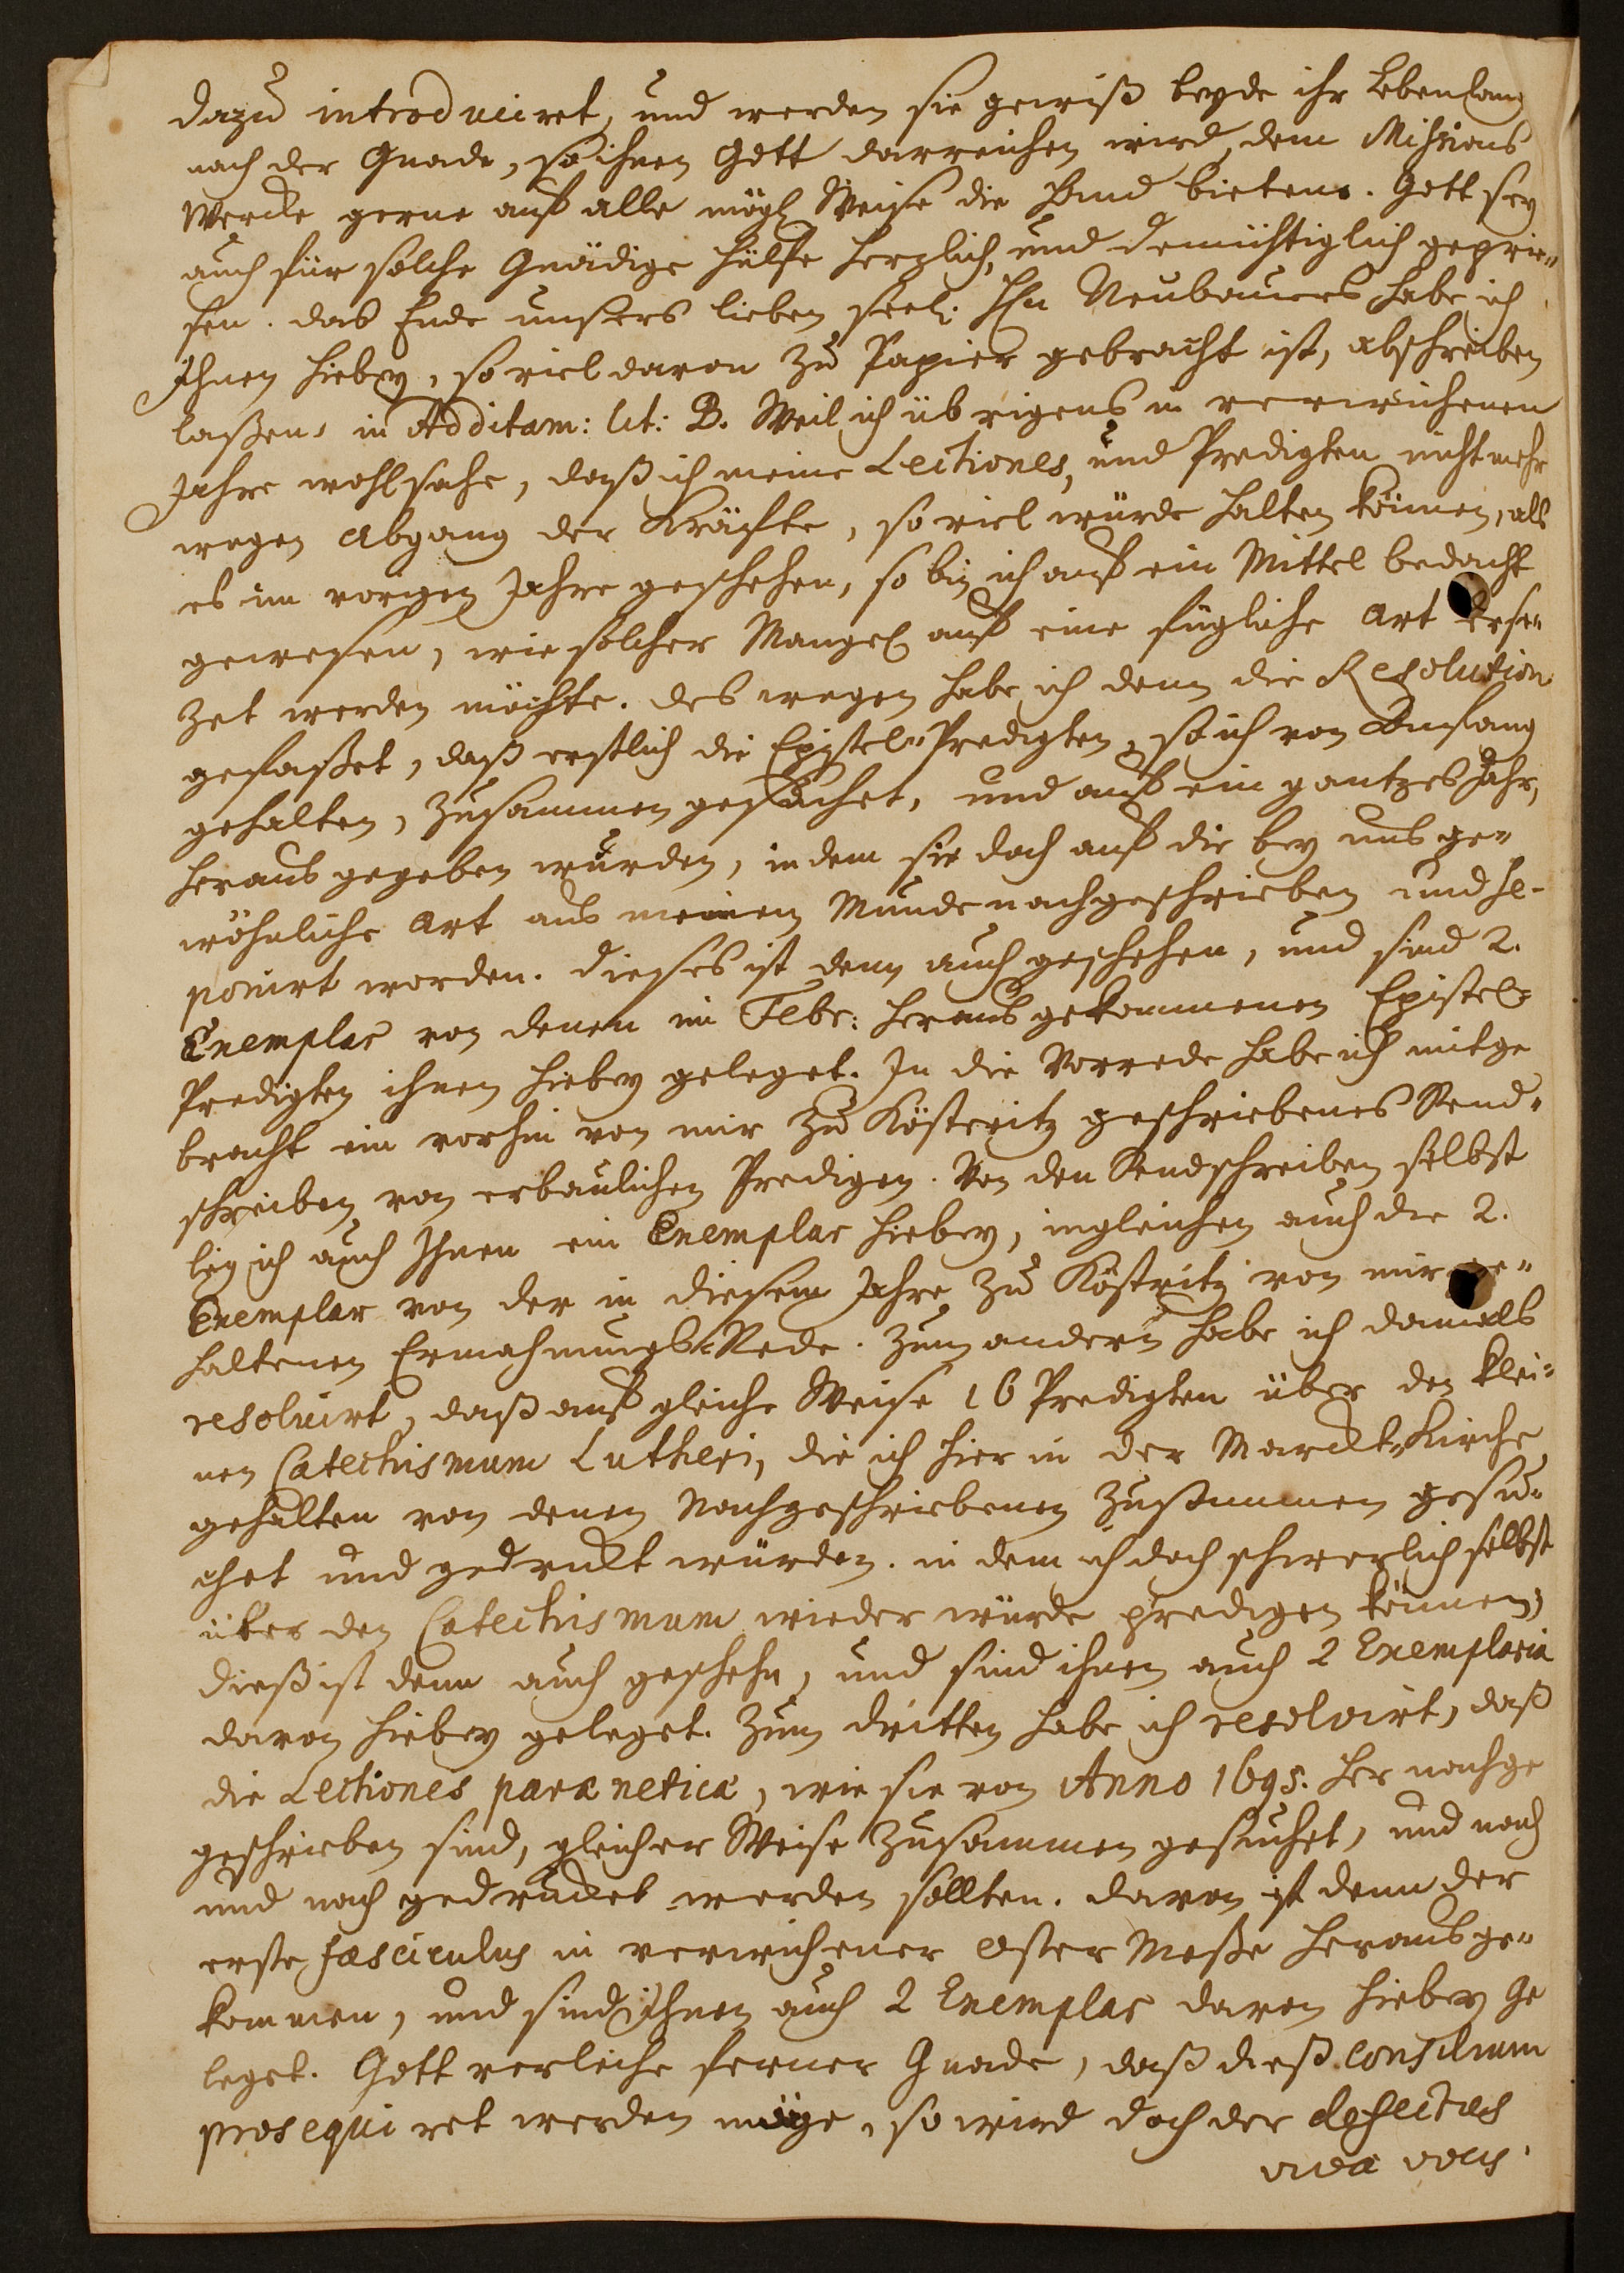 dazu introduciret, und werden sie gewiß beyde ihr Lebenlang
nach der Gnade, so ihnen Gott darreichen wird, dem Missions
Wercke gerne auf alle mögl. Weise die Hand bieten. Gott sey
auch für solche Gnädige Hülfe herzlich, und demüthiglich geprie„
sen. das Ende unsers lieben seel. Hn Neubauers habe ich
Ihnen hiebey, so viel davon zu Papier gebracht ist, abschreiben
laßen, in Additam: lit: B. Weil ich übrigens in verwichenen
Jahre wohl sahe, daß ich meine Lectiones, und Predigten nicht mehr
wegen Abgang der Kräffte, so viel würde halten können, als
es im vorigen Jahre geschehen, so bin ich auf ein Mittel bedacht
gewesen, wie solcher Mangel auf eine fügliche Art erse„
zet werden möchte. deswegen habe ich denn die Resolution
gefaßet, daß erstlich die Epistel„Predigten, so ich von Anfang
gehalten, zusammen gesuchet, und auf ein gantzes Jahr,
heraus gegeben würden, indem sie doch auf die bey uns ge„
wöhnliche Art aus meinem Munde nachgeschrieben und he-
ponirt worden. dieses ist denn auch geschehen, und sind 2.
Exemplar von denen im Febr: herausgekommenen Epistel-
Predigten ihnen hiebey geleget. In die Vorrede habe ich mitge
bracht ein vorhin von mir zu Kösteritz geschriebenes Send„
schreiben von erbaulichen Predigen. Von den Sendschreiben selbst
leg ich auch Ihnen ein Exemplar hiebey, ingleichen auch die 2.
Exemplar von der in diesem Jahre zu Köstritz von mir ge„
haltenen Ermahnungs„Rede. Zum andern habe ich damals
resolvirt, daß auf gleiche Weise 16 Predigten über den klei„
nen Catechismum Lutheri, die ich hier in der Marckt„Kirche
gehalten von denen Nachgeschriebenen zusammen gesu„
chet und gedruckt würden. in dem ich doch schwerlich selbst
über den Catechismum wieder würde predigen können,
dieß ist denn auch geschehn, und sind ihnen auch 2 Exemplaria
davon hiebey geleget. Zum dritten habe ich resolvirt, daß
die Lectiones paræneticæ, wie sie von Anno 1695. her nachge
geschrieben sind, gleicher Weise zusammen gesuchet, und nach
und nach gedrucket werden sollten. davon ist denn der
erste fasciculus in verwichener Oster Meße herausge„
kommen, und sind Ihnen auch 2 Exemplar davon hiebey ge
leget. Gott verleihe ferner Gnade, daß dieß consilium
prosequiret werden möge, so wird doch der defectus
vivæ vocis